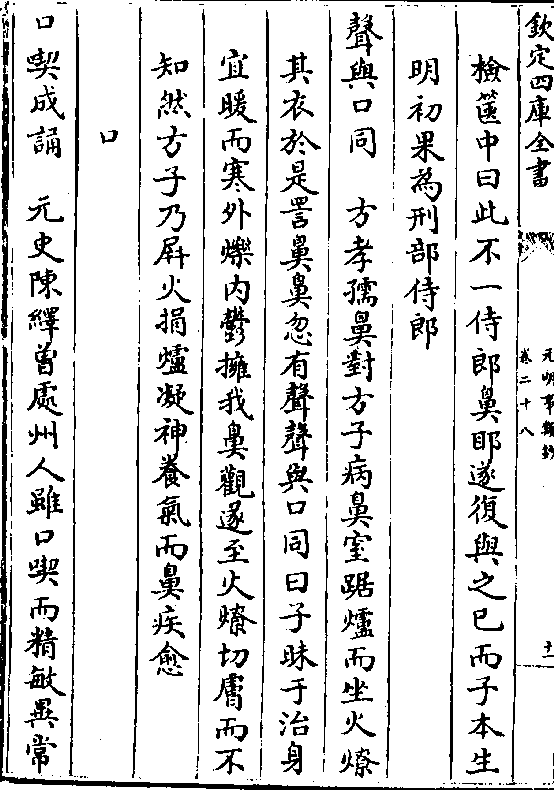 欽定四庫全書
元明事類鈔
卷二十八
十一
檢篋中曰此不一侍郎鼻耶遂復與之已而子本生
明初果為刑部侍郎
聲與口同　方孝孺鼻對方子病鼻窒踞爐而坐火燎
其衣於是詈鼻鼻忽有聲聲與口同曰子昧于治身
宜暖而寒外爍內鬱擁我鼻觀遂至火燎切膚而不
知然方子乃屏火捐爐凝神養氣而鼻疾愈
口
口喫成誦　元史陳繹曾處州人雖口喫而精敏異常